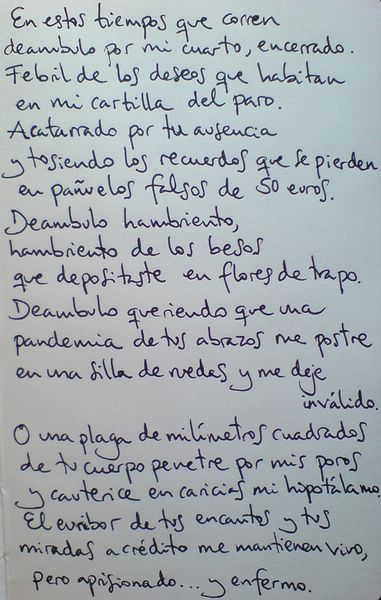 En estos tiempos que corren
deambulo por mi cuarto, encerrado.
Febril de los deseos que habitan
en mi cartilla del paro.
Acatarrado por tu ausencia
y tosiendo los recuerdos que se pierden
en pañuelos falsos de 50 euros.
Deambulo hambriento,
hambriento de los besos
que depositaste en flores de trapo.
Deambulo queriendo que una
pandemia de tus abrazos me postre
en una silla de ruedas y me deje
inválido.
O una plaga de milímetros cuadrados
de tu cuerpo penetre por mis poros
y cauterice en caricias mi hipotálamo.
El euribor de tus encantos y tus
miradas a crédito me mantienen vivo,
pero aprisionado... y enfermo.